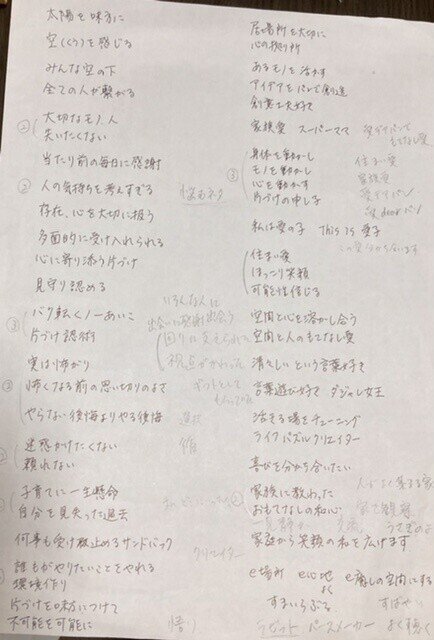 太陽を味方に
空(くう)を感じる
みんな空の下
全ての人が繋がる
② 大切なモノ人
失いたくない
当たり前の毎日に感謝
② 人の気持ちを考えすぎる
悩みネタ
存在、心を大切に扱う
多面的に受け入れられる
心に寄り添う片づけ
見守り認める
いろんな人に
出会いに感謝 出会う
③ バク転くノ一あいこ
周りに支えられた
片づけ認術
視点がかわった
実は怖がり
ギフトとして
③ 怖くなる前の思い切りのよさ
もらっている
やらない後悔よりやる後悔
選択
② 迷惑かけたくない
頼れない
子育てに一生懸命
自分を見失った過去
何事も受け止めるサンドバック
クリエイター
誰もがやりたいことをやれる
環境作り
片づけを味方につけて
不可能を可能に
悟り
居場所を大切に
心の拠り所
あるモノを活かす
アイデアをパンで創造
創意工夫好き
家族愛 スーパーママ
愛でイッパンで
もてなし愛
③ 身体を動かし
モノを動かし
心を動かす
片づけの申し子
住まい愛
家族愛
私は愛の子 This is 愛子
この愛分からないます
住まい愛
ほっこり笑顔
可能性信じる
空間と心を溶かし合う
空間と人のもてなし愛
清々しいという言葉好き
言葉遊び好き ダジャレ女王
活きる場をチューニング
ライフパズルクリエイター
喜びを分かち合いたい
人がよく集まる家
家族に教わった
おもてなしの和心
家で観察
うさぎのよう
家庭から笑顔の和を広げます
e場所 e心地よく e癒しの空間にする
すまいらぶる
すばやい
ラビット ペースメーカー よく聴く